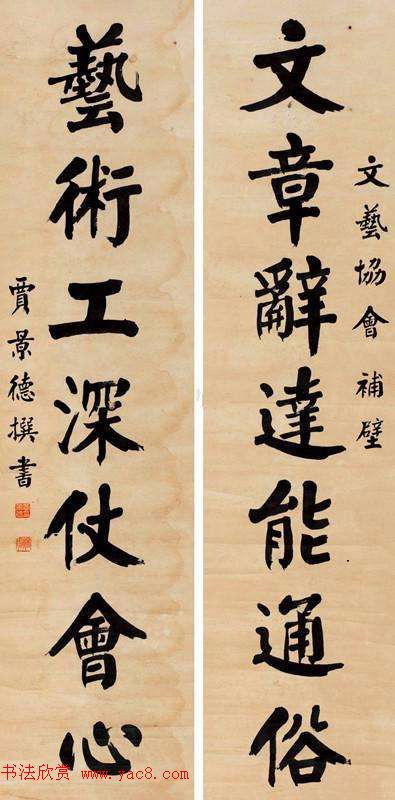 文藝協會 補壁
文章辭達能通俗
藝術工深仗會心
賈景德撰書
书法欣赏 www.yac8.com